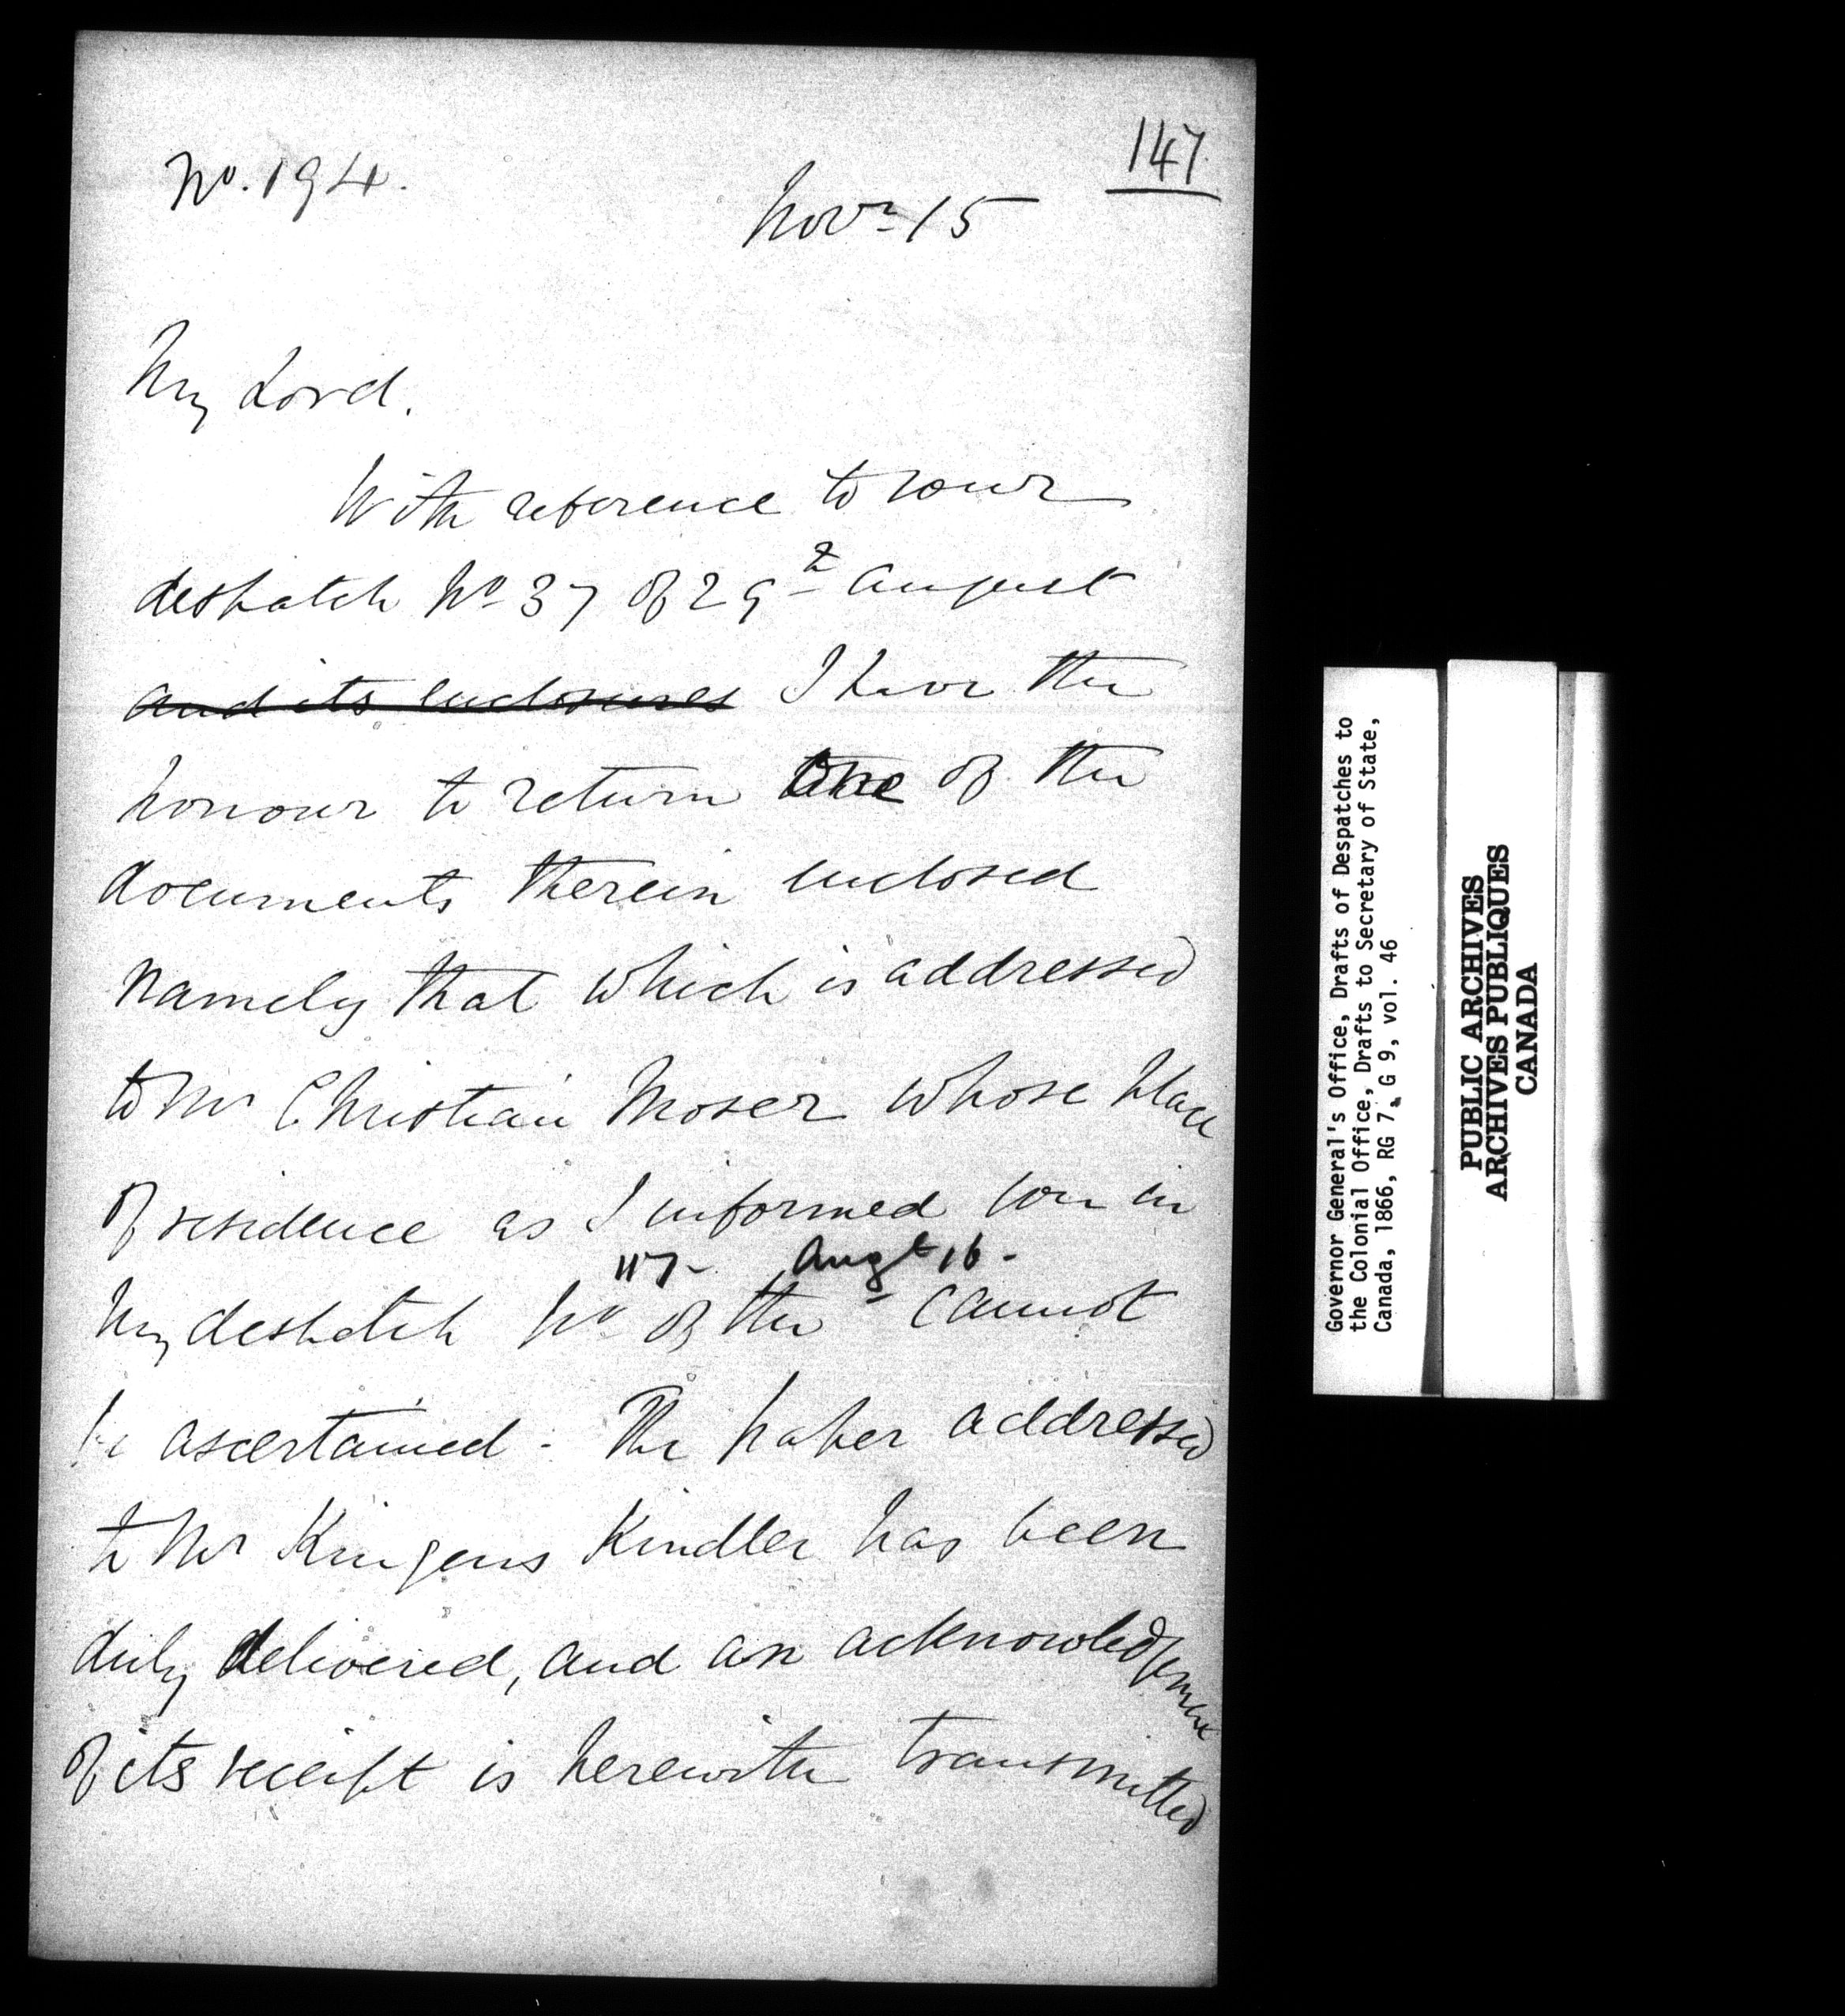 147
No. 194.
Novr 15
My Lord.
With reference to your
despatch No 37 of 29th August
and its enclosures I have the
honour to return one of the
documents therein enclosed
namely that which is addressed
to Mr Christian Moser whose place
of residence as I informed you in
117- Augt 16-
my despatch No of the cannot
be ascertained - The paper addressed
to Mr Kindler has been
duly delivered, and an acknowledgment
of its receipt is herewith transmitted
Governor General's Office, Drafts of Despatches to
the Colonial Office, Drafts to Secretary of State,
Canada, 1866, RG 7, G 9, vol. 46
PUBLIC ARCHIVES
ARCHIVES PUBLIQUES
CANADA